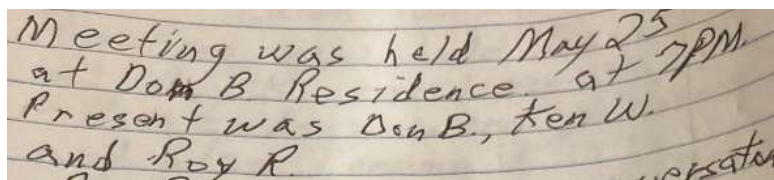 Meeting was held May 25 at 7PM.
at Don B Residence.
Present was Don B., Ken W.
and Roy R.